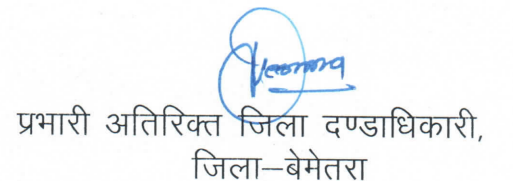 प्रभारी अतिरिक्त जिला दण्डाधिकारी,
जिला–बेमेतरा